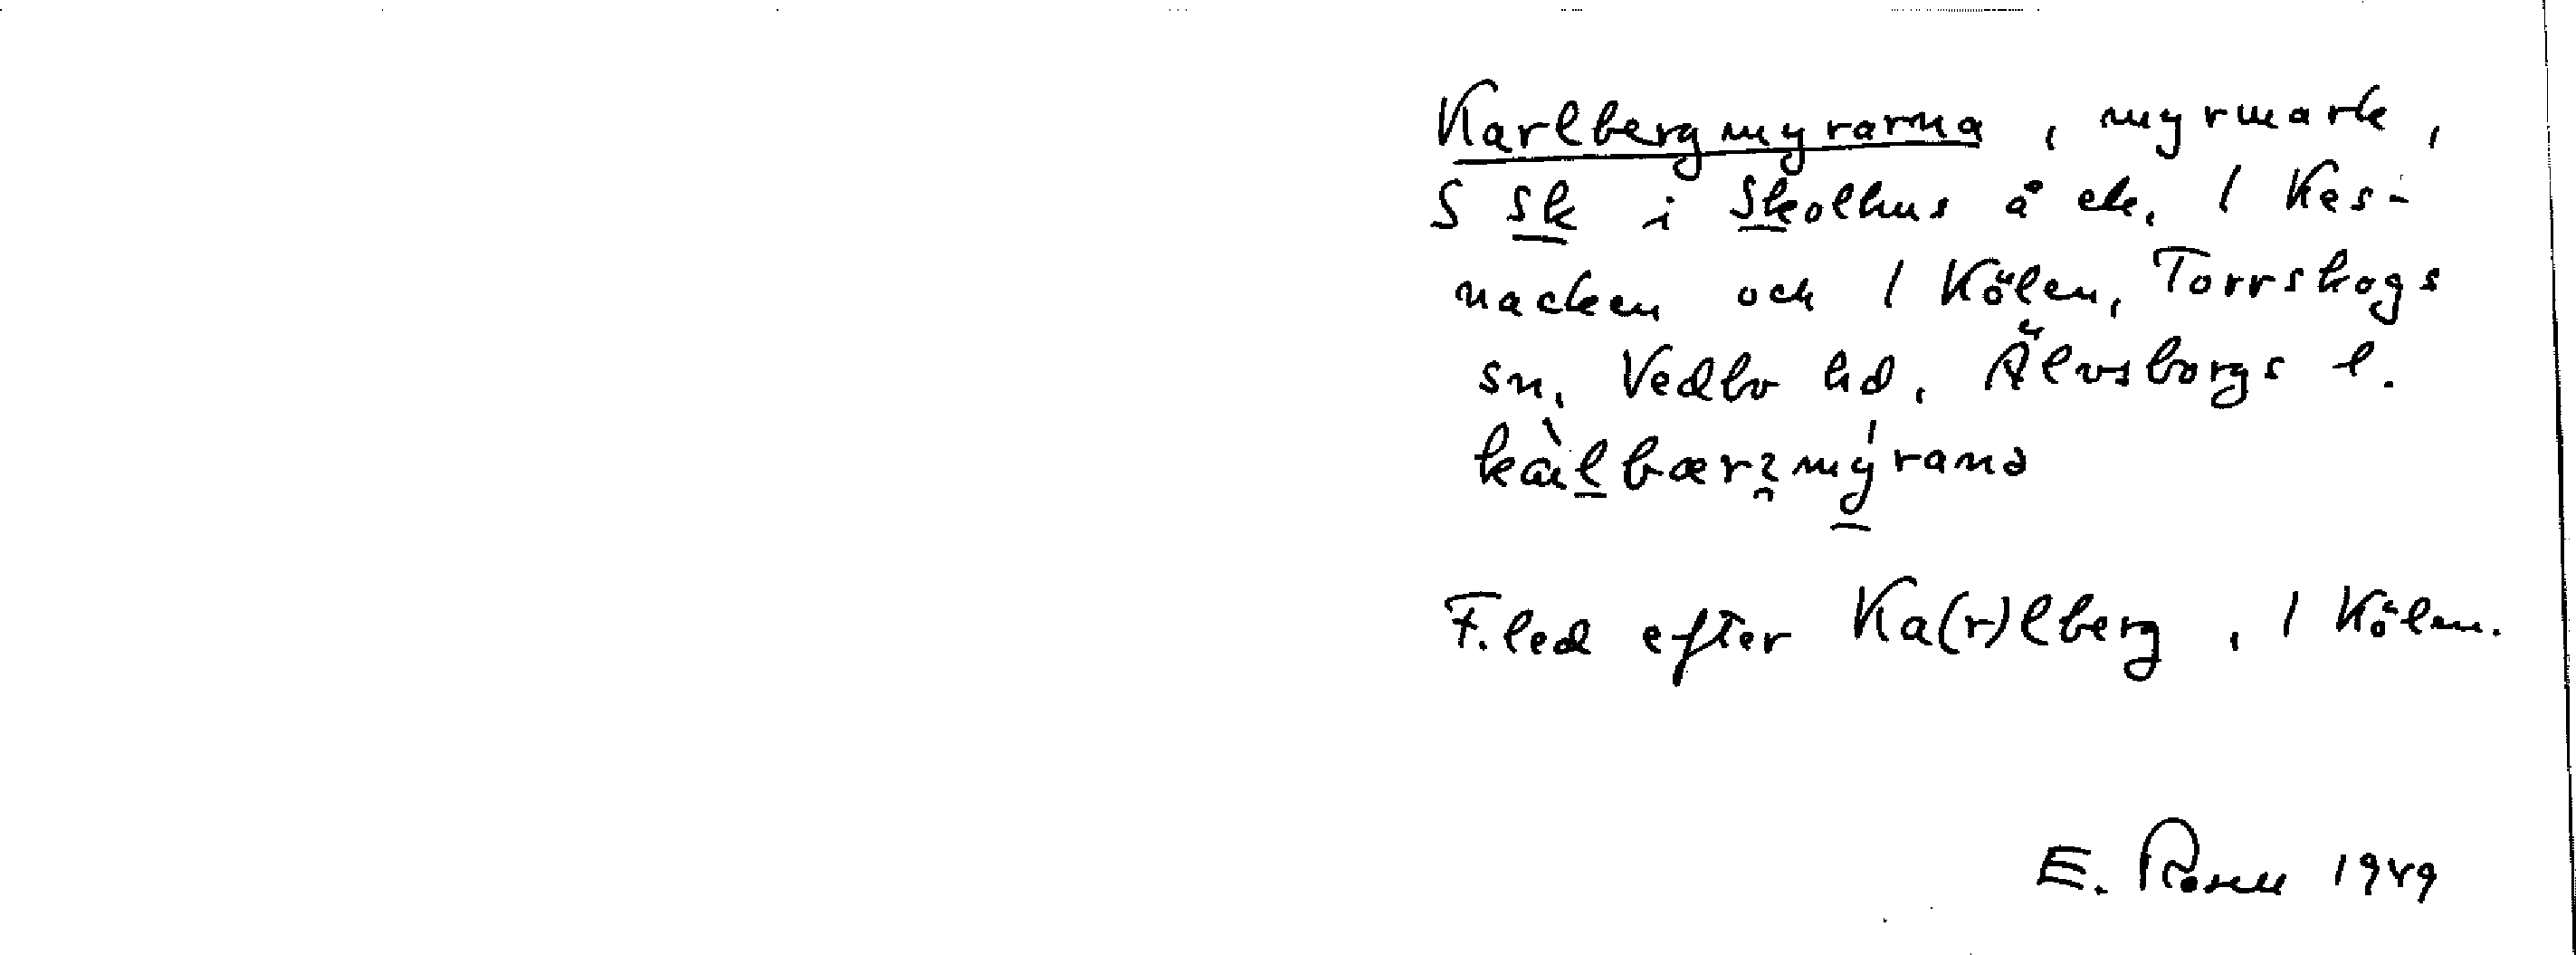 Karlbergmyrarna, myrmark,
S Sk i Skolhus å ek. 1 Kes-
nacken och 1 Kölen, Torrskogs
sn, Vedbo hd, Älvsborgs l.
F.led efter Ka(r)lberg, 1 Kölen.
E. Rosell 1949